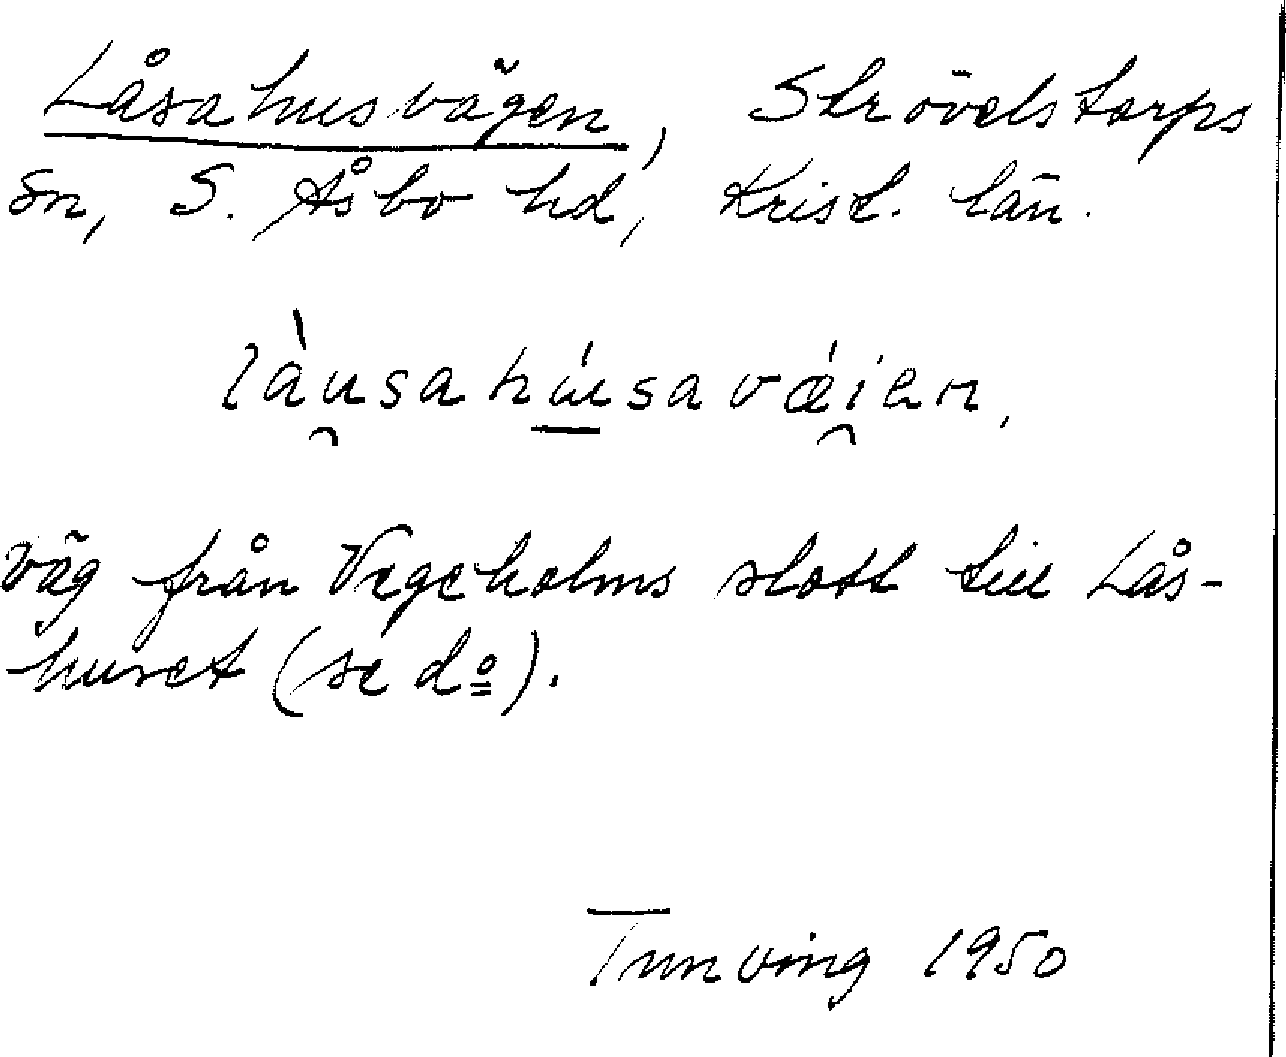 Låsahusvägen, Strövelstorps
sn, S. Åsbo hd, Krist. län.
làu̯sahú̱savǽi̯en,
Väg från Vegeholms slott till Lås-
huset (se dº).
Tunving 1950